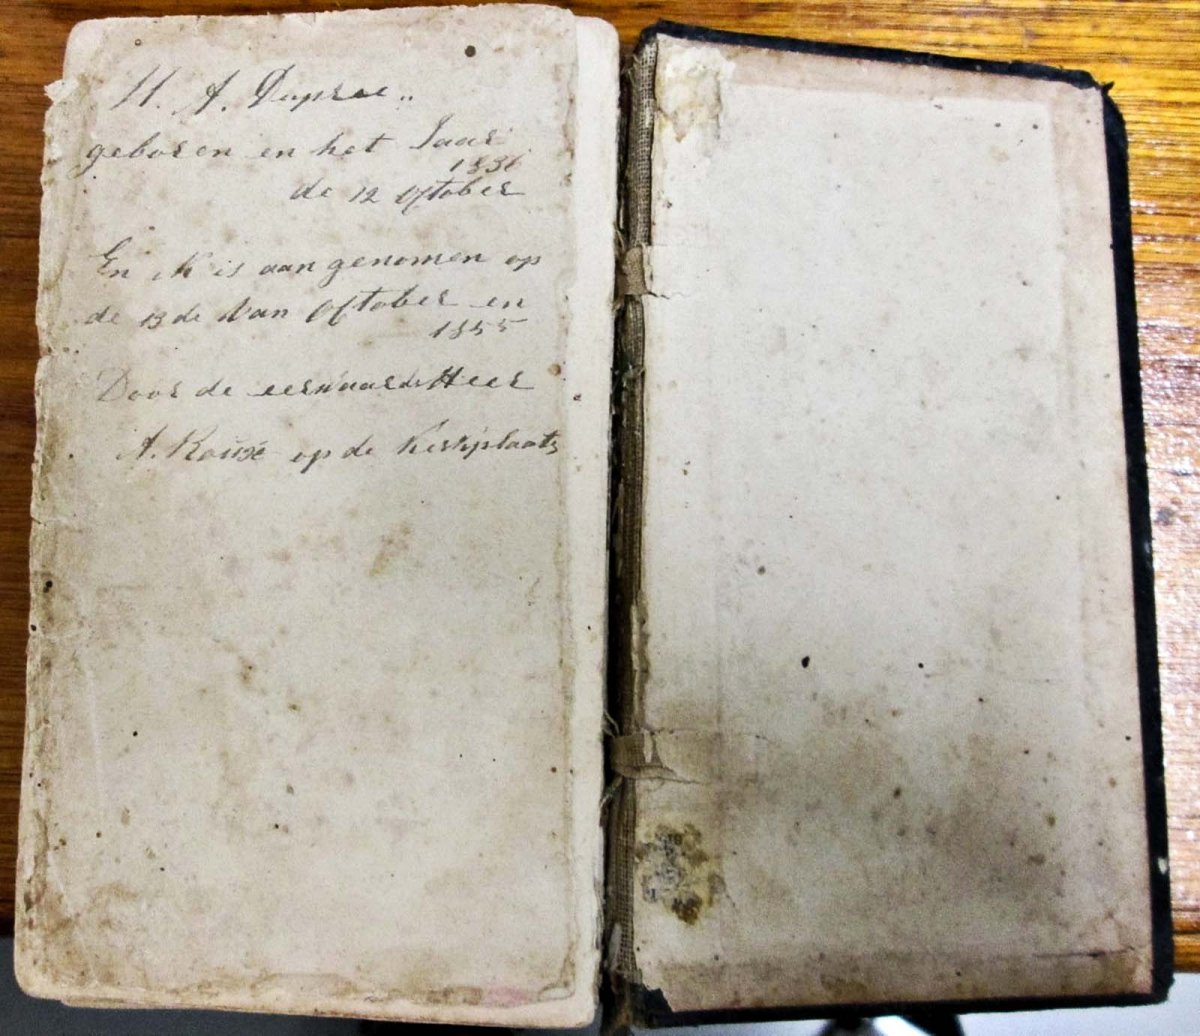 A. Dupree
geboren in het Jaar
1836
de 12 October
En ik is aangenomen op
de 13 de Van October en
1855
Door de eerwaarde Heer
A. Roux op de Kerkplaats